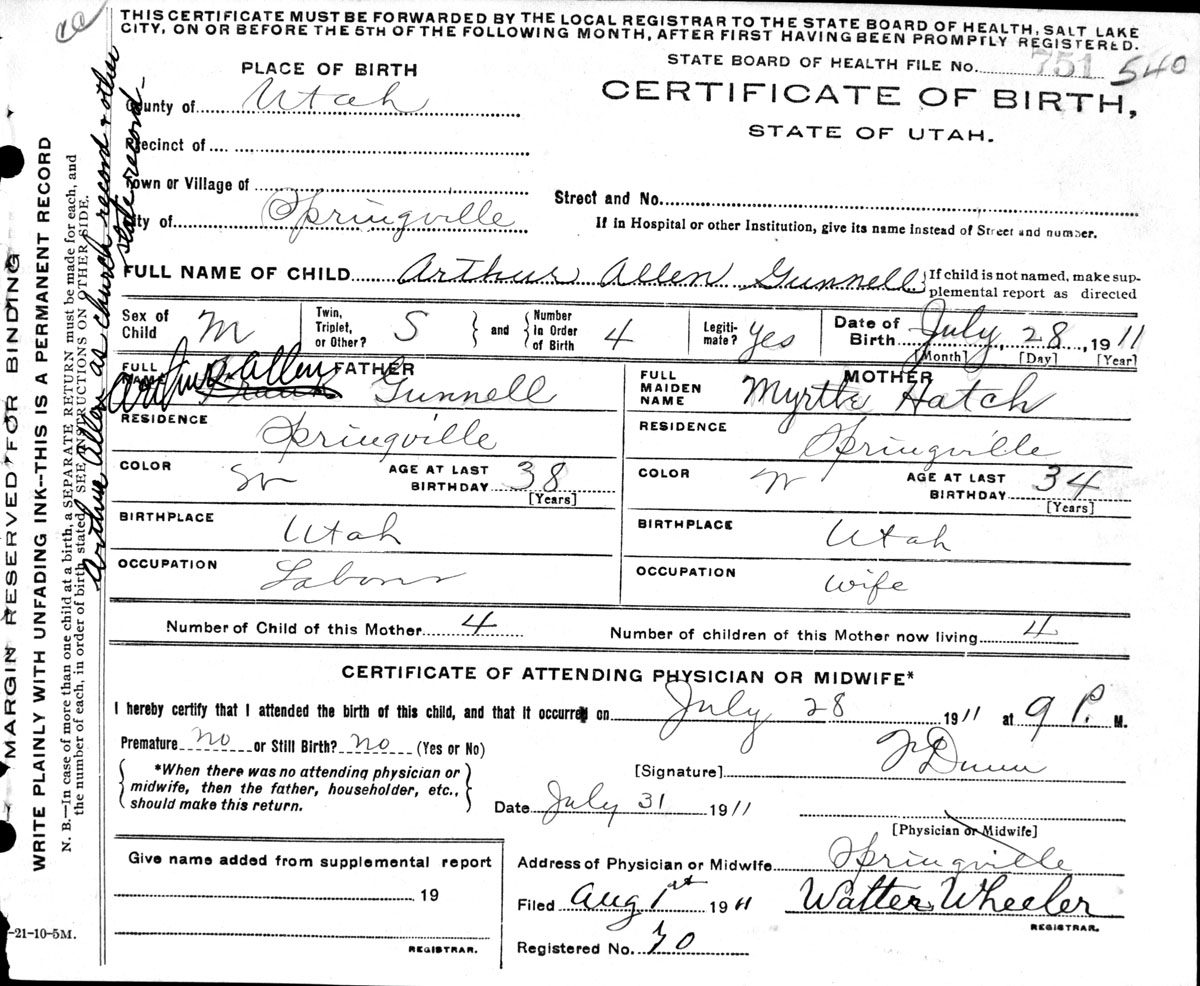 THIS CERTIFICATE MUST BE FORWARDED BY THE LOCAL REGISTRAR TO THE STATE BOARD OF HEALTH, SALT LAKE
CITY, ON OR BEFORE THE 5TH OF THE FOLLOWING MONTH, AFTER FIRST HAVING BEEN PROMPTLY REGISTERED.
STATE BOARD OF HEALTH FILE No. 751 540
PLACE OF BIRTH
CERTIFICATE OF BIRTH,
STATE OF UTAH.
County of Utah
Precinct of
Town or Village of
Street and No.
City of Springville
If in Hospital or other Institution, give its name instead of Street and number.
FULL NAME OF CHILD Arthur Allen Gunnell
If child is not named, make sup-
plemental report as directed
Sex of Child M
Twin, Triplet, or Other? S
and
Number in Order of Birth 4
Legiti-mate? Yes
Date of Birth July, 28, 1911
[Month] [Day] [Year]
FATHER
FULL NAME Arthur Allen Gunnell
RESIDENCE Springville
COLOR W
AGE AT LAST BIRTHDAY 38
[Years]
BIRTHPLACE Utah
OCCUPATION Labor
MOTHER
FULL MAIDEN NAME Myrtle Hatch
RESIDENCE Springville
COLOR W
AGE AT LAST BIRTHDAY 34
[Years]
BIRTHPLACE Utah
OCCUPATION Wife
Number of Child of this Mother 4 Number of children of this Mother now living 4
CERTIFICATE OF ATTENDING PHYSICIAN OR MIDWIFE*
I hereby certify that I attended the birth of this child, and that it occurred on July 28 1911 at 9 P. M.
Premature no or Still Birth? no (Yes or No)
*When there was no attending physician or
midwife, then the father, householder, etc.,
should make this return.
[Signature] Dunn
Date July 31 1911
[Physician or Midwife]
Give name added from supplemental report
19
REGISTRAR.
Address of Physician or Midwife Springville
Filed Aug 1st 1911
Walter Wheeler
REGISTRAR.
Registered No. 70
-21-10-5M.
MARGIN RESERVED FOR BINDING
WRITE PLAINLY WITH UNFADING INK--THIS IS A PERMANENT RECORD
N. B.—In case of more than one child at a birth, a SEPARATE RETURN must be made for each, and
the number of each, in order of birth, stated. SEE INSTRUCTIONS ON OTHER SIDE.
Arthur Allen as church record & other
state record—